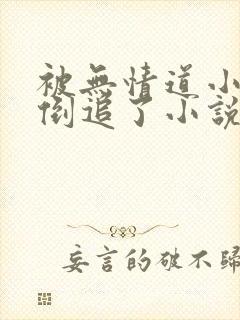 被無情道小
倒追了小說
妄言的破不歸